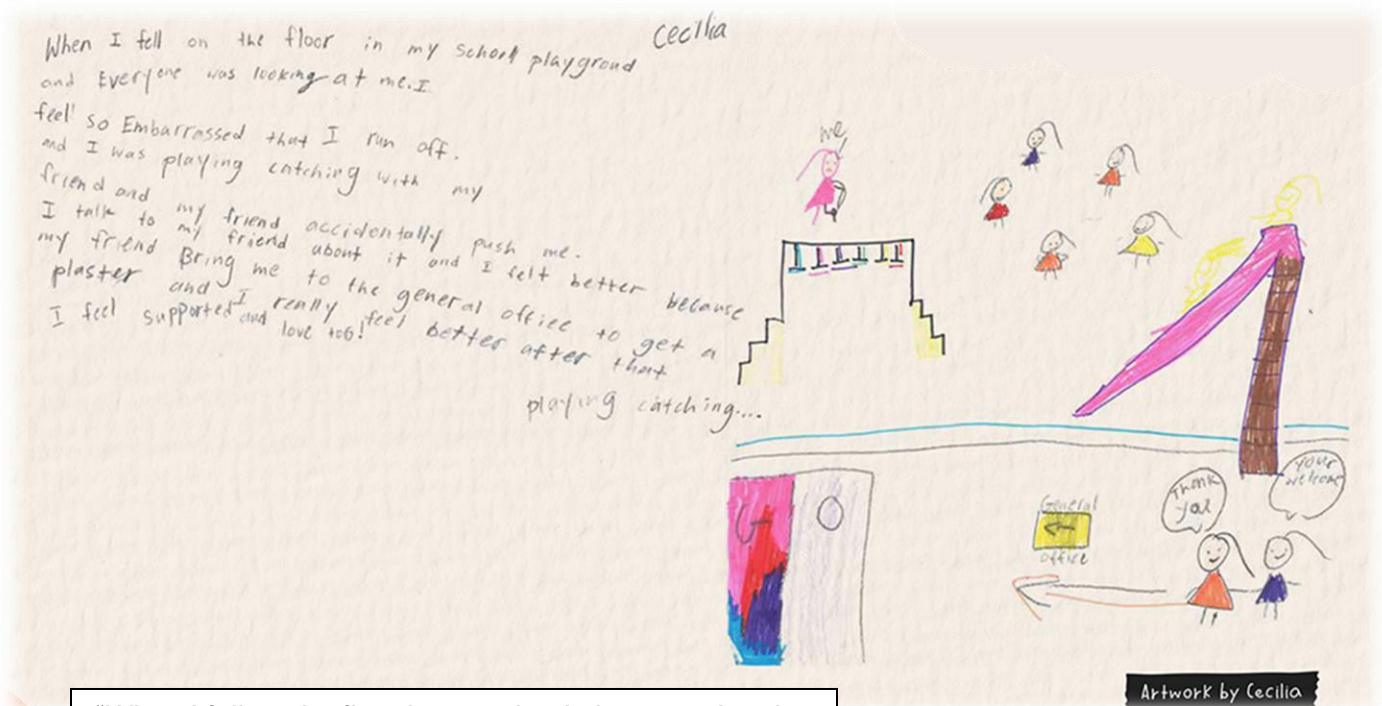 Cecilia
When I fell on the floor in my school playgroud
and Everyone was looking at me. I
feel so Embarrassed that I run off.
and I was playing catching with my
friend and my friend accidentally push me.
I talk to my friend about it and I felt better because
my friend Bring me to the general office to get a
plaster and I really feel better after that
I feel supported and love too!
playing catching....
me
General
office
Thank
you
Your
welcome
Artwork by Cecilia